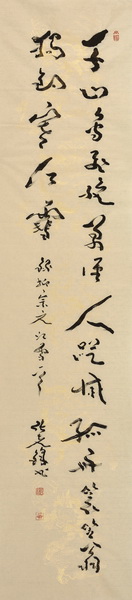 千山鸟飞绝万径人踪灭孤舟蓑笠翁
独钓寒江雪 柳宗元江雪